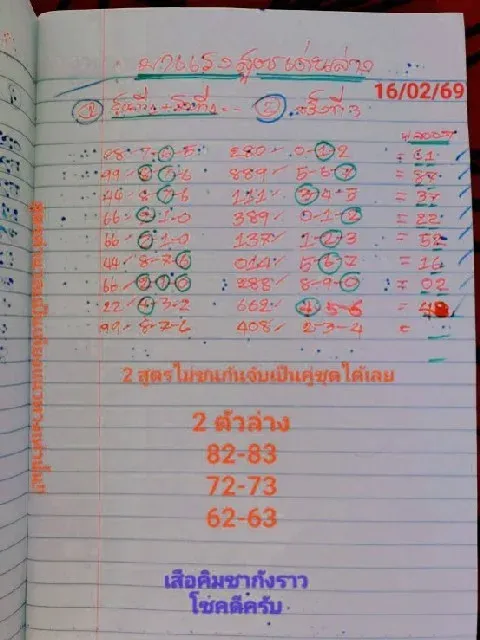 มาแรงสูตรเด่นล่าง
16/02/69
① ②
28 5 280 0-1-2 = 61
99 889 5-6-7 = 88
46 8-7-6 131 3-4-5 = 37
66 2-1-0 389 0-1-2 = 22
66 2-1-0 137 1-2-3 = 52
44 8-7-6 014 5-6-7 = 16
66 2-1-0 288 8-9-0 = 02
22 4-3-2 662 4-5-6 = 4
99 8-7-6 408 2-3-4 =
2 สูตรไม่ชนกันจับเป็นคู่ชุดได้เลย
2 ตัวล่าง
82-83
72-73
62-63
เสือคิมซากังราว
โชคดีครับ